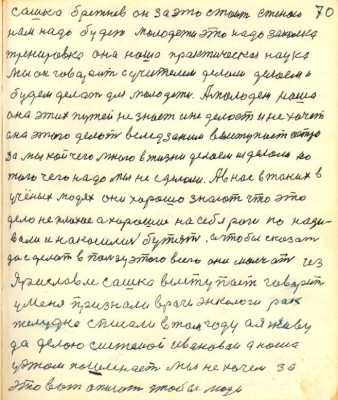 70
сашка бретнев он за это стоит стеною
нам надо будет молодети это надо закалка
тренировка она наша практическая наука
мы он говарят сучителем делали делаем и
будем делат для молодети. А молодеж наша
она этих путей не знает и не делает и не хочет
она этого делат вслед за ним выступает
За мы кой чего много в жизни делаем и делали но
того чего надо мы не сделали. А в нас в таких в
учёных людях они хорошо знают что это
дело не плохое а хорошие на себя роги по нади-
вали и накопили бутят, а чтобы сказат
да сделат в ползу этого всего они молчат из
Ярислав ле сашка выступает говарит
у меня признали врачи энкологи рак
желудка списали в том году а я живу
да делаю системой ивановай а наша
у этом помешает мы не хочем за
это вот они чтобы люди